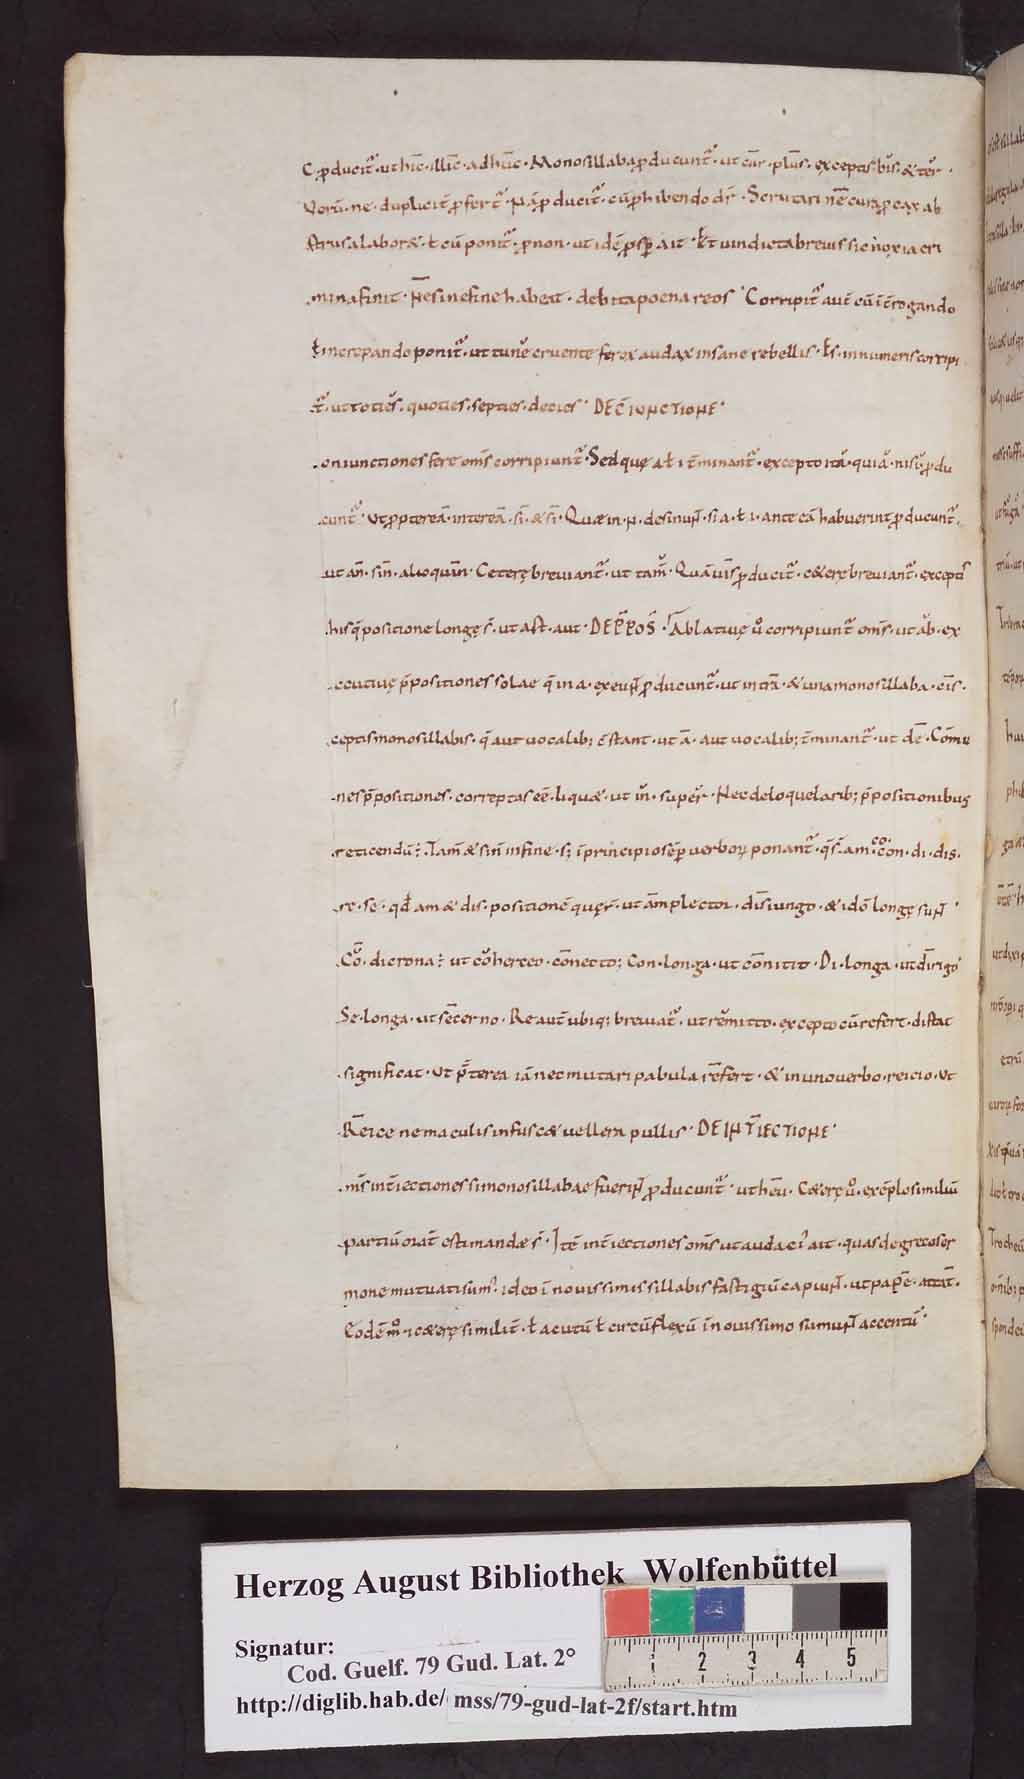 C p̱ducit᷑. ut hīc. illīc. adhūc. Monosillaba p̱ducunt᷑. ut cūr. plūs. exceptis bĭs. & tĕr.
Verū. ne. duplicit̄ p̱fert᷑. Nā p̱ducit᷑. cū p̱hibendo dr̄. Scrutari nē cura p̱cax ab
strusa labor&. ł cū ponit᷑. p̱ non. ut idē p̱sp̄ ait. Et vindicta brevis sic noxia cri
mina finit. Nē sine fine habeat. debita poena reos. Corripit᷑ aut̄ cū īt̄rogando
ł increpando ponit᷑. ut tunĕ cruente ferox audax insane rebellis. Ł s. in numeris corripi
t᷑. ut totiĕs. quoties. septies. decies. DE CIUNCTIONE.
oniunctiones fere om̄s corripiunt᷑. Sed quę a ł i t̄minant᷑. excepto ită. quiă. nisĭ. p̱du
cunt᷑. Ut p̱p̱tereā. intereā. sī. & sī. Quæ in. N. desinunt. si a. ł i. ante eā habuerint p̱ducunt᷑.
ut ān. sīn. alioquīn. Ceterę breviant᷑. ut tam̆. Quāvīs p̱ducit᷑. c&erę breviant᷑. exceptis
his q̄ positione longę s̄. ut ast. aut. DE P̄POS. Ablativę v̊ corripiunt᷑ om̄s. ut ăb. ex
ccutivę p̄positiones solae q̄ in a. exeunt p̱ducunt᷑. ut intrā. & una monosillaba. cīs.
ceptis monosillabis. q̄ aut vocalib; c̄stant. ut ā. aut vocalib; t̄minant᷑. ut dē. Cōmu
nes p̄positiones. correptas eē. liqu&. ut ĭn. supĕr. Nec de loquelarib; p̄positionibus
reticendū. Tam̄ & sin̄ in fine. s; ī principio sēp̱ verborꝝ ponant᷑. q̄ s̄. am. co. con. di. dis.
re. se. qd̄ am & dis. positionē quęr̄. ut āmplector. dīsiungo. & idō longę sunt.
Co. dicrona. ut cŏhereo. cōnecto; Con. longa. ut cōnitit. Di. longa. ut dīrigo
Se. longa. ut sēcerno. Re aut̄ ubiq; breviat᷑. ut rĕmitto. excepto cū refert. distat
significat. Ut p̄terea iā nec mutari pabula rēfert. & in uno verbo. reicio. Ut
Rēice ne maculis infusc& vellera pullis. DE INT̄IECTIONE.
m̄s int̄iectiones si monosillabae fuerint p̱ducunt᷑. ut hēu. C&erę v̊. exēplo similiū
partiū orat̄ estimandæ s̄. Itē int̄iectiones om̄s ut audaci᷑ ait. quas de greco ser
mone mutuati sum᷑. ideo ī novissimis sillabis fastigiū capiunt. ut papē. attāt.
Eodē m̊. & c&erę similit̄. ł acutū ł circūflexū in novissimo sumunt accentū.
Herzog August Bibliothek Wolfenbüttel
Signatur:
Cod. Guelf. 79 Gud. Lat. 2°
http://diglib.hab.de/ mss/79-gud-lat-2f/start.htm
1 2 3 4 5